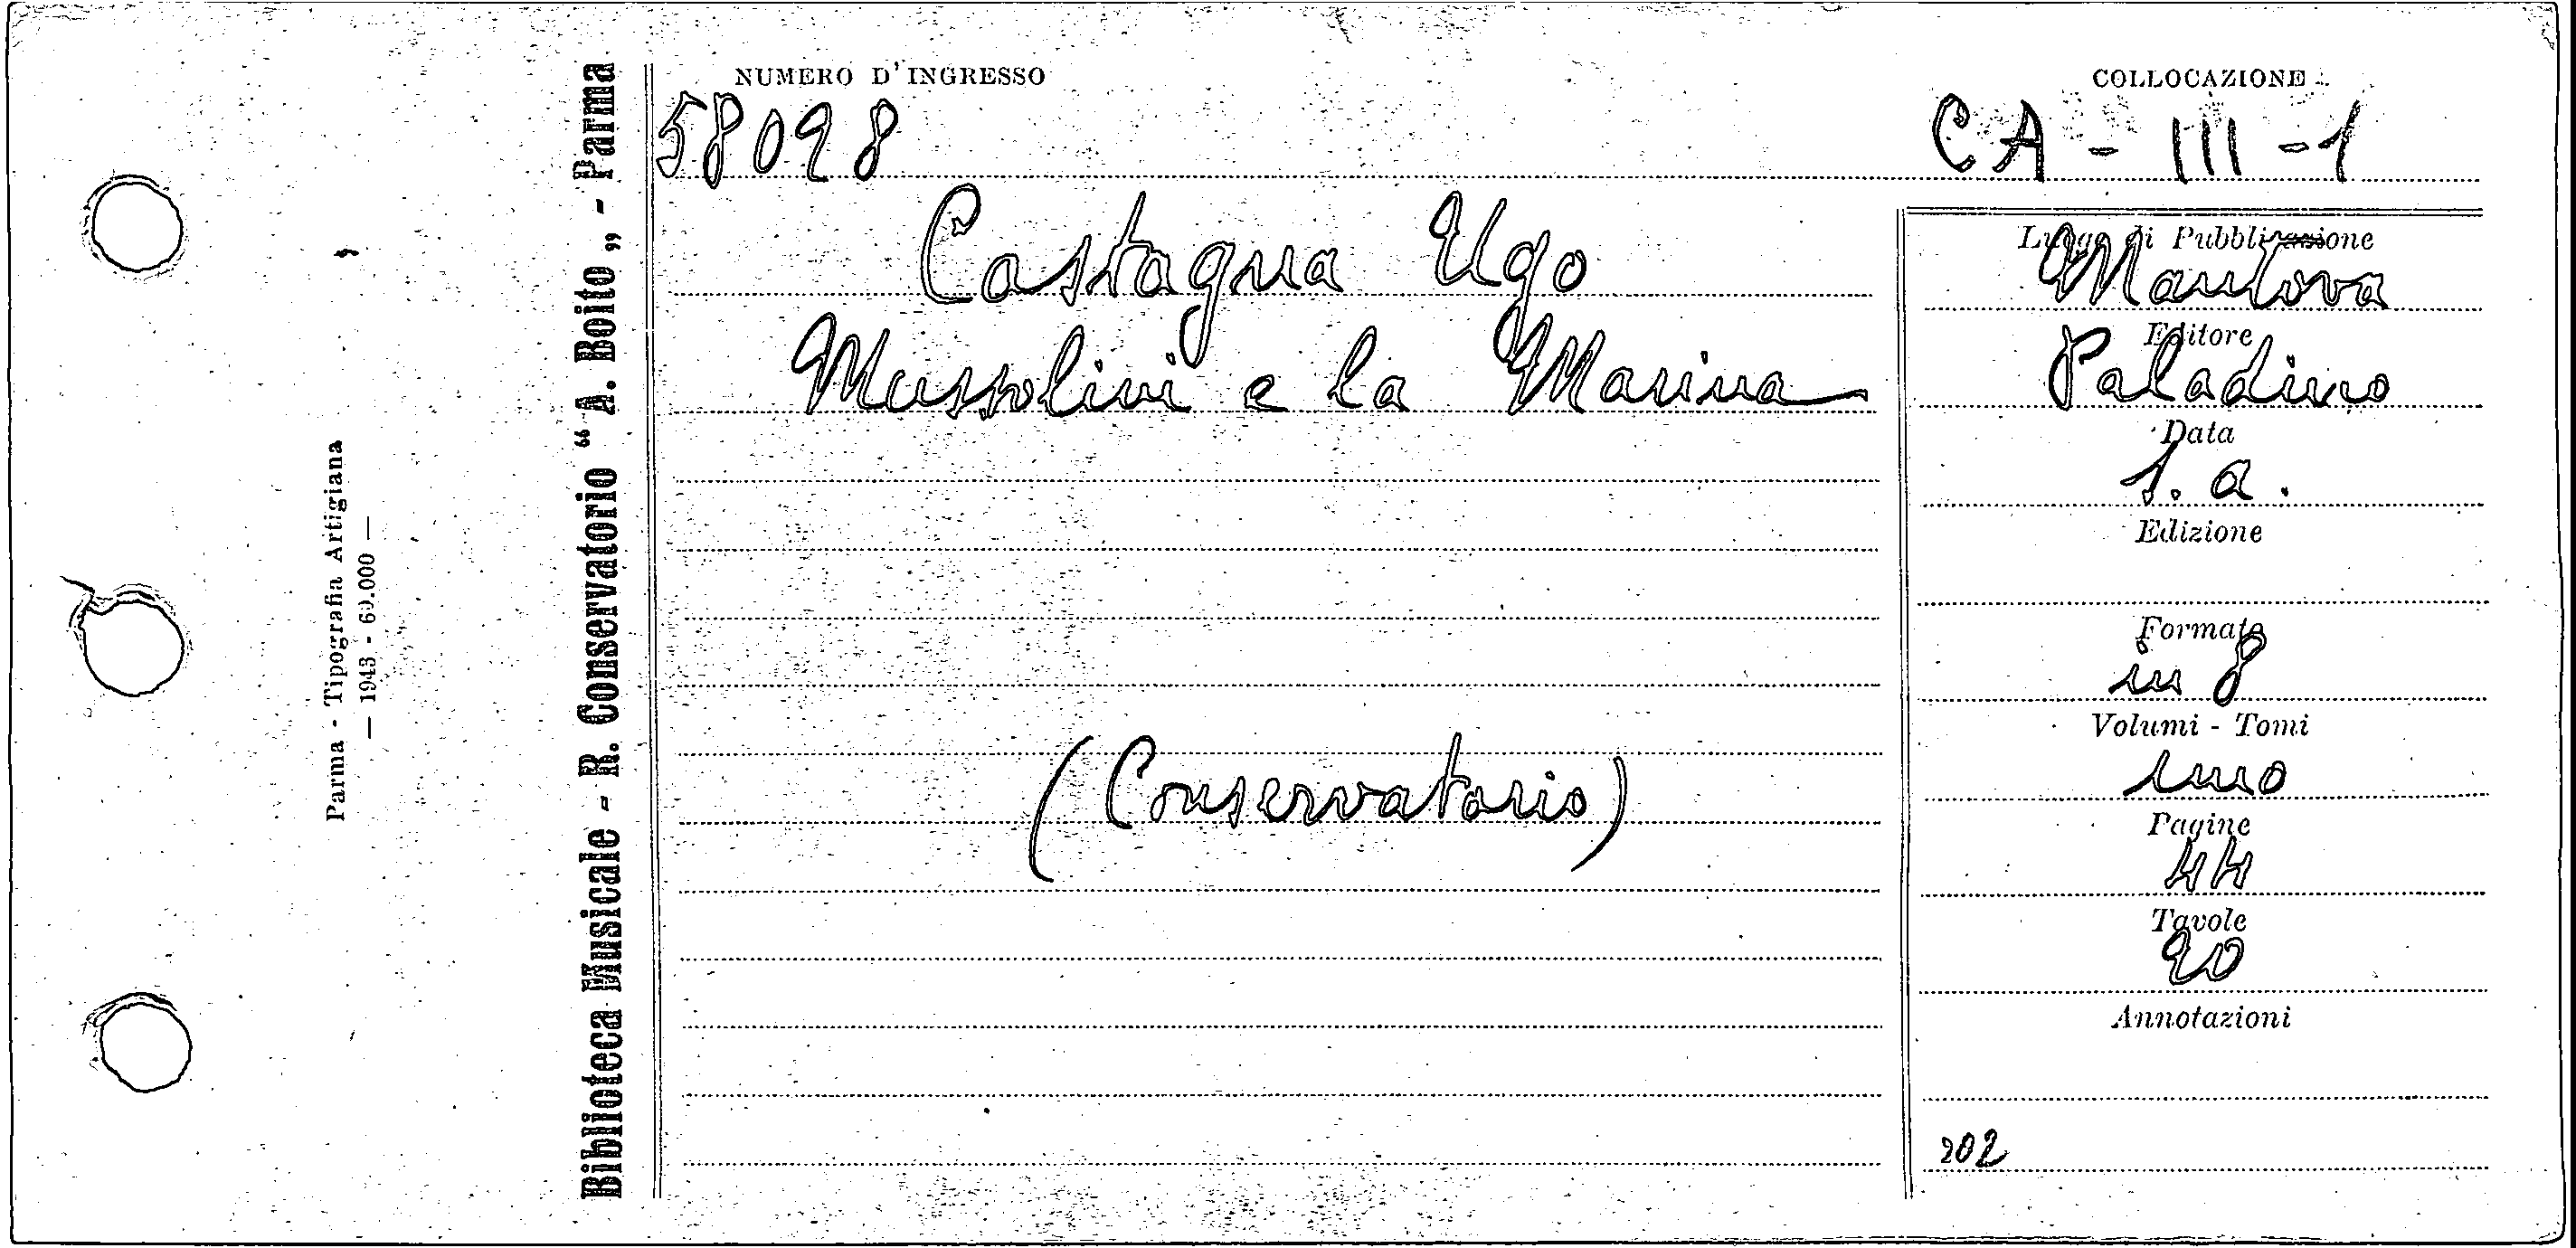 NUMERO D'INGRESSO
58098
COLLOCAZIONE
CA - III - 1
Castagna Ugo
Mussolini e la Marina
(Conservatorio)
Luogo di Pubblicazione
Mantova
Editore
Paladino
Data
s. a.
Edizione
Formato
in 8
Volumi - Tomi
uno
Pagine
44
Tavole
20
Annotazioni
202
Biblioteca Musicale - R. Conservatorio “A. Boito„ - Parma
Parma - Tipografia Artigiana
— 1943 - 60.000 —